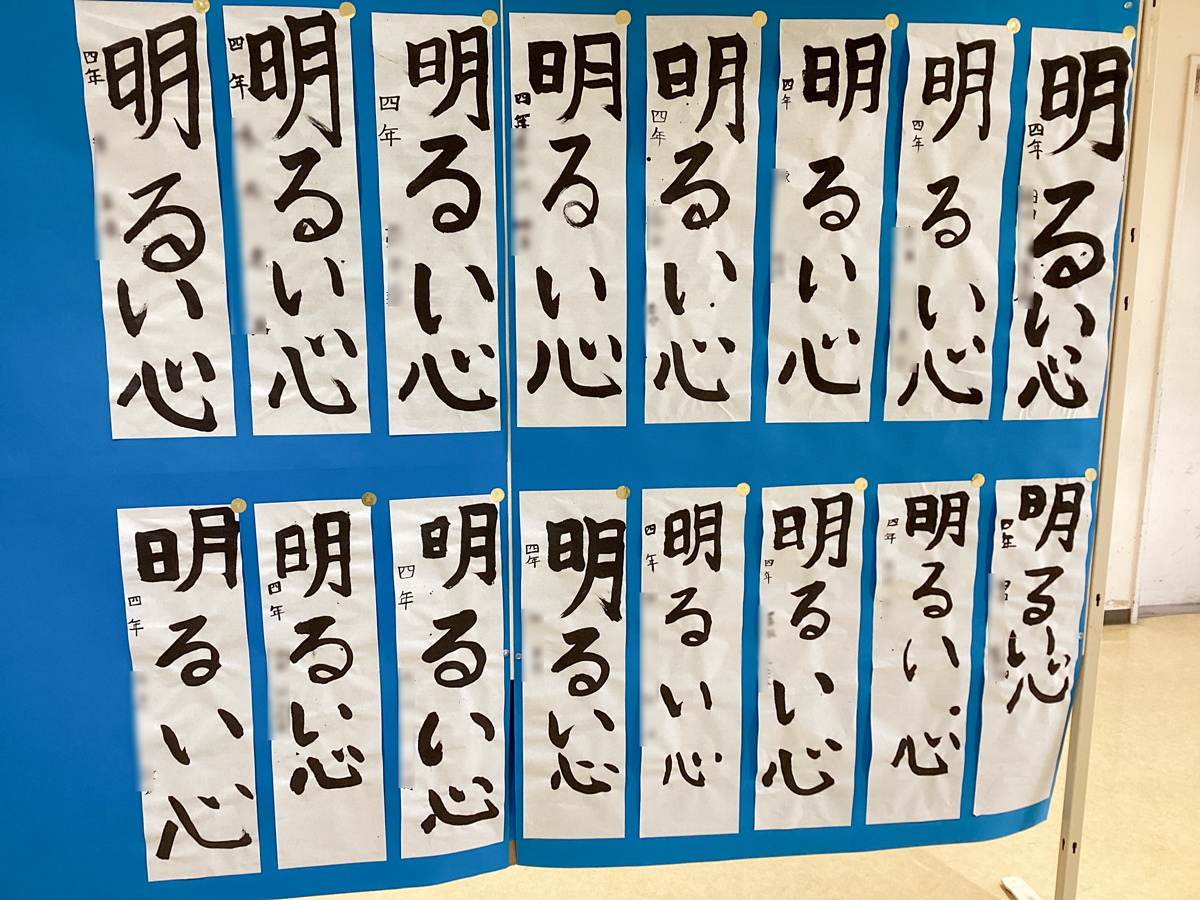 明るい心
四年
明るい心
四年
明るい心
四年
明るい心
四年
明るい心
四年
明るい心
四年
明るい心
四年
明るい心
四年
明るい心
四年
明るい心
四年
明るい心
四年
明るい心
四年
明るい心
四年
明るい心
四年
明るい心
四年
明るい心
四年